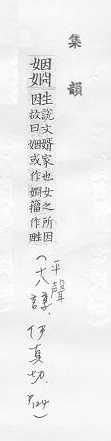 集韻
姻
婣
生說文婿家也女之所因
因故曰姻或作婣籀作
(平聲
十八諄. 伊真切. P124)